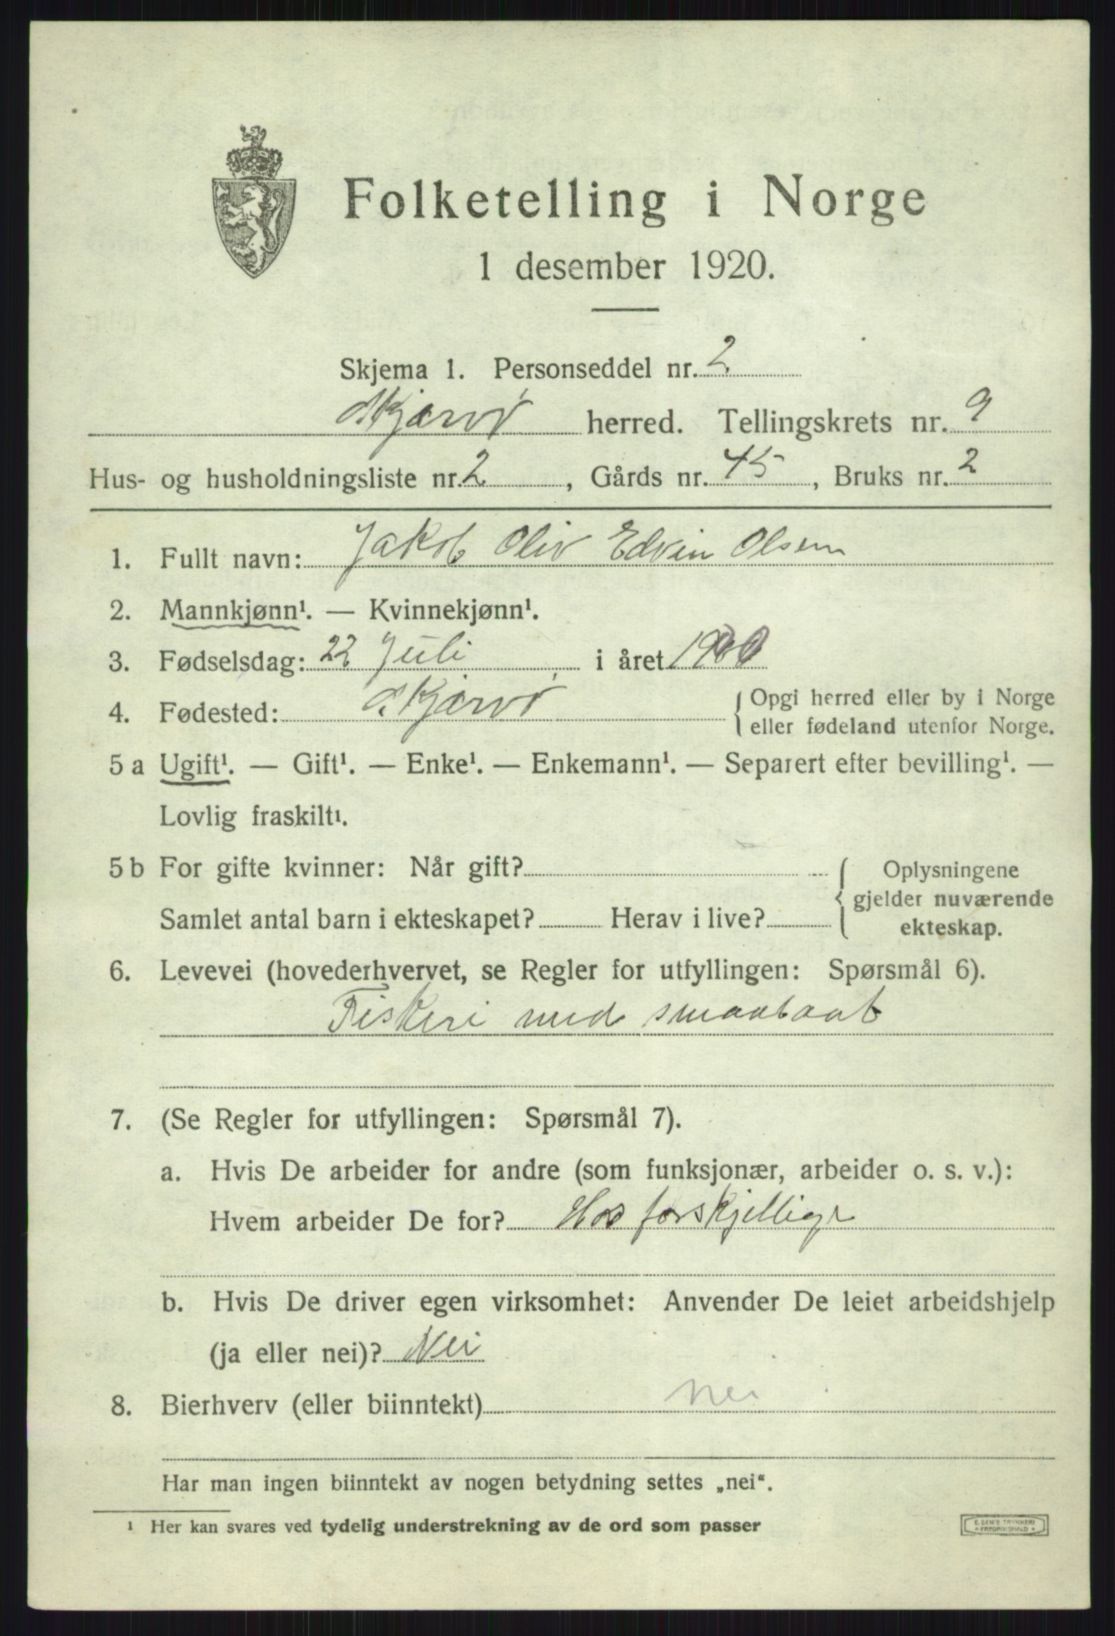 Folketelling i Norge
1 desember 1920.
Skjema 1. Personseddel nr. 2
Skjærvø herred. Tellingskrets nr. 9
Hus- og husholdningsliste nr. 2, Gårds nr. 45, Bruks nr. 2
1. Fullt navn: Jakob Oliv Edvin Olsen
2. Mannkjønn¹. — Kvinnekjønn¹.
3. Fødselsdag: 22 Juli i året 1900
4. Fødested: Skjærvø
Opgi herred eller by i Norge
eller fødeland utenfor Norge.
5 a Ugift¹. — Gift¹. — Enke¹. — Enkemann¹. — Separert efter bevilling¹. —
Lovlig fraskilt¹.
5 b For gifte kvinner: Når gift?
Samlet antal barn i ekteskapet? Herav i live?
Oplysningene
gjelder nuværende
ekteskap.
6. Levevei (hovederhvervet, se Regler for utfyllingen: Spørsmål 6).
Fiskeri med smaabaat
7. (Se Regler for utfyllingen: Spørsmål 7).
a. Hvis De arbeider for andre (som funksjonær, arbeider o. s. v.):
Hvem arbeider De for? Hos forskjellige
b. Hvis De driver egen virksomhet: Anvender De leiet arbeidshjelp
(ja eller nei)? Nei
8. Bierhverv (eller biinntekt) Nei
Har man ingen biinntekt av nogen betydning settes „nei“.
¹ Her kan svares ved tydelig understrekning av de ord som passer